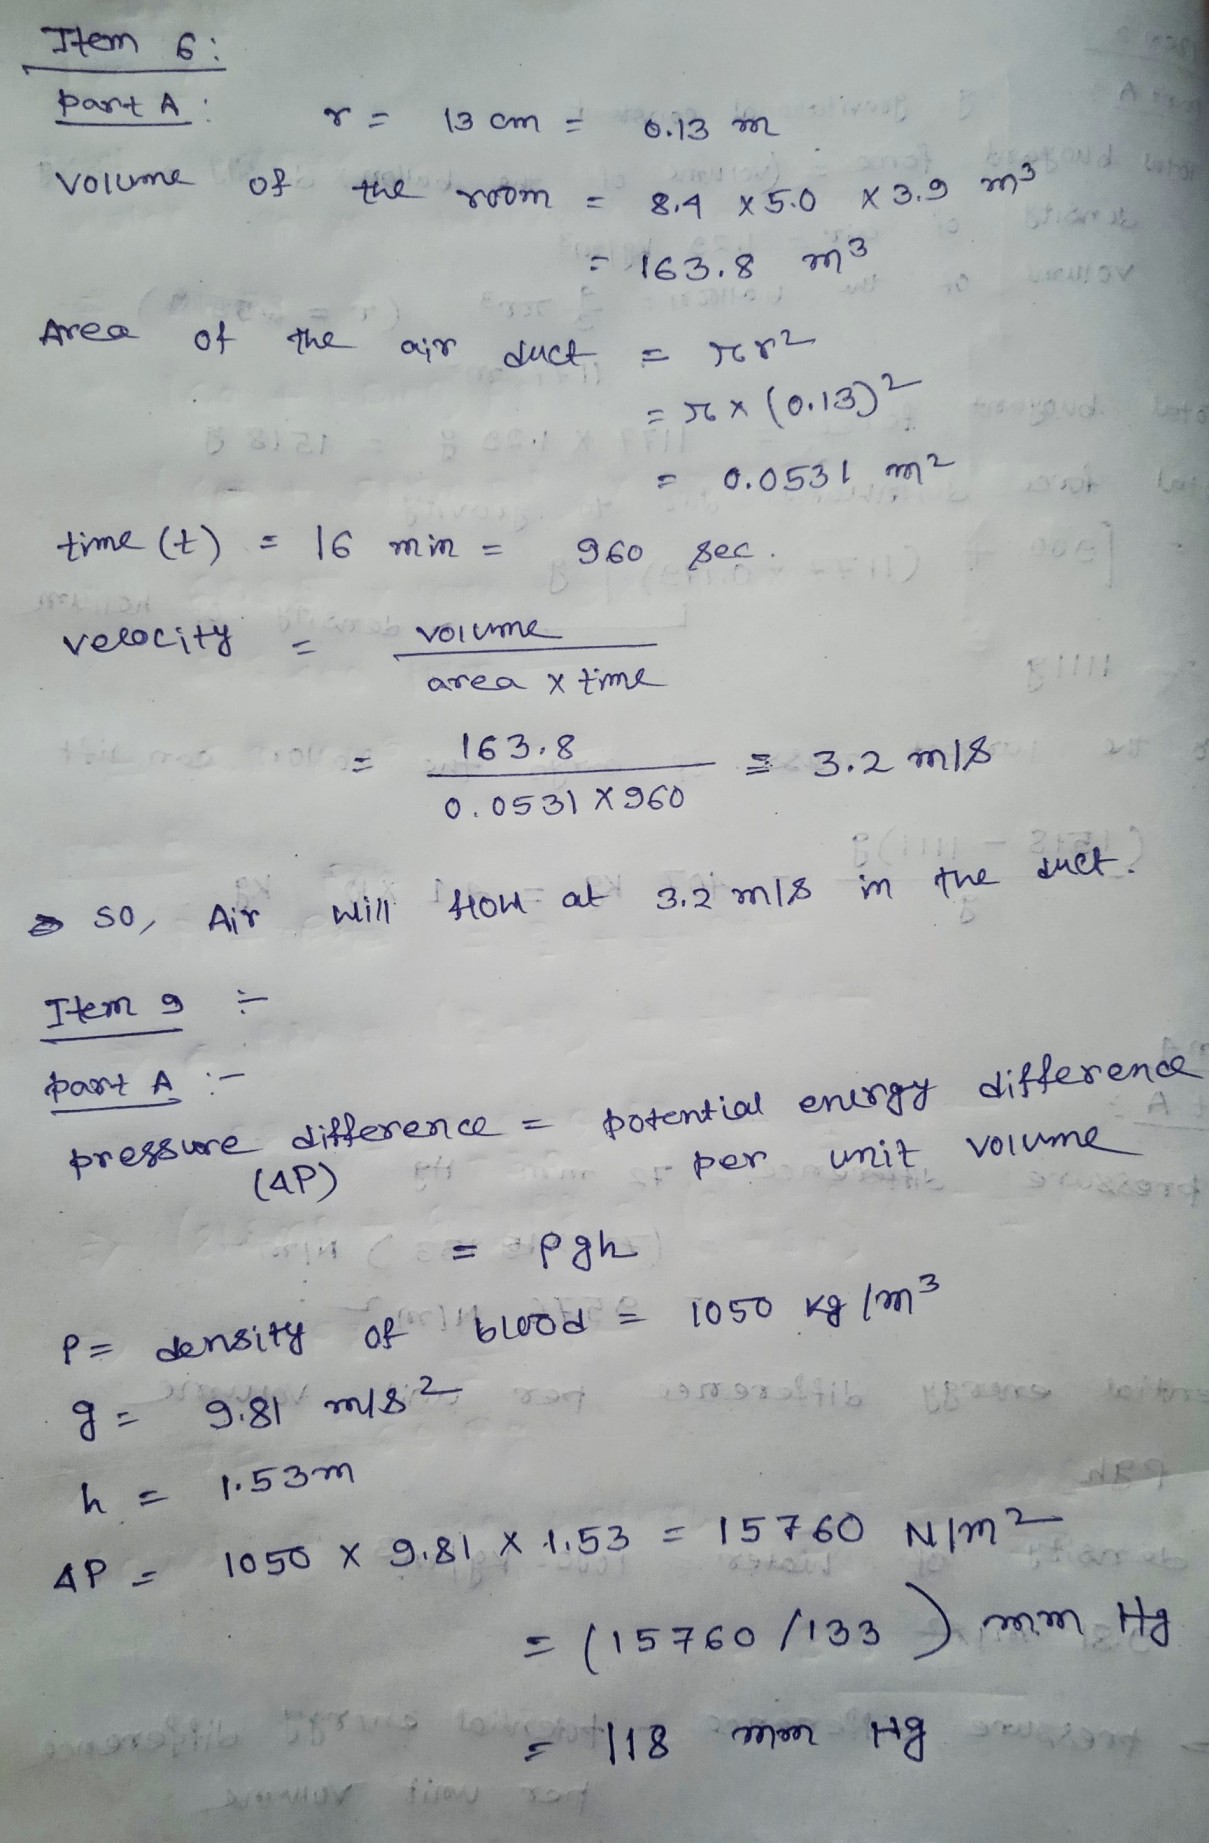 Item 6:
Part A:
r = 13 cm = 0.13 m
Volume of the room = 8.4 x 5.0 x 3.9 m³
= 163.8 m³
Area of the air duct = πr²
= π x (0.13)²
= 0.0531 m²
time (t) = 16 min = 960 sec.
velocity = volume / area x time
= 163.8 / 0.0531 x 960 = 3.2 m/s
so, Air will flow at 3.2 m/s in the duct.
Item 9 :-
Part A :-
pressure difference = potential energy difference
(ΔP) per unit volume
= ρgh
ρ = density of blood = 1050 kg/m³
g = 9.81 m/s²
h = 1.53m
ΔP = 1050 x 9.81 x 1.53 = 15760 N/m²
= (15760/133) mm Hg
= 118 mm Hg